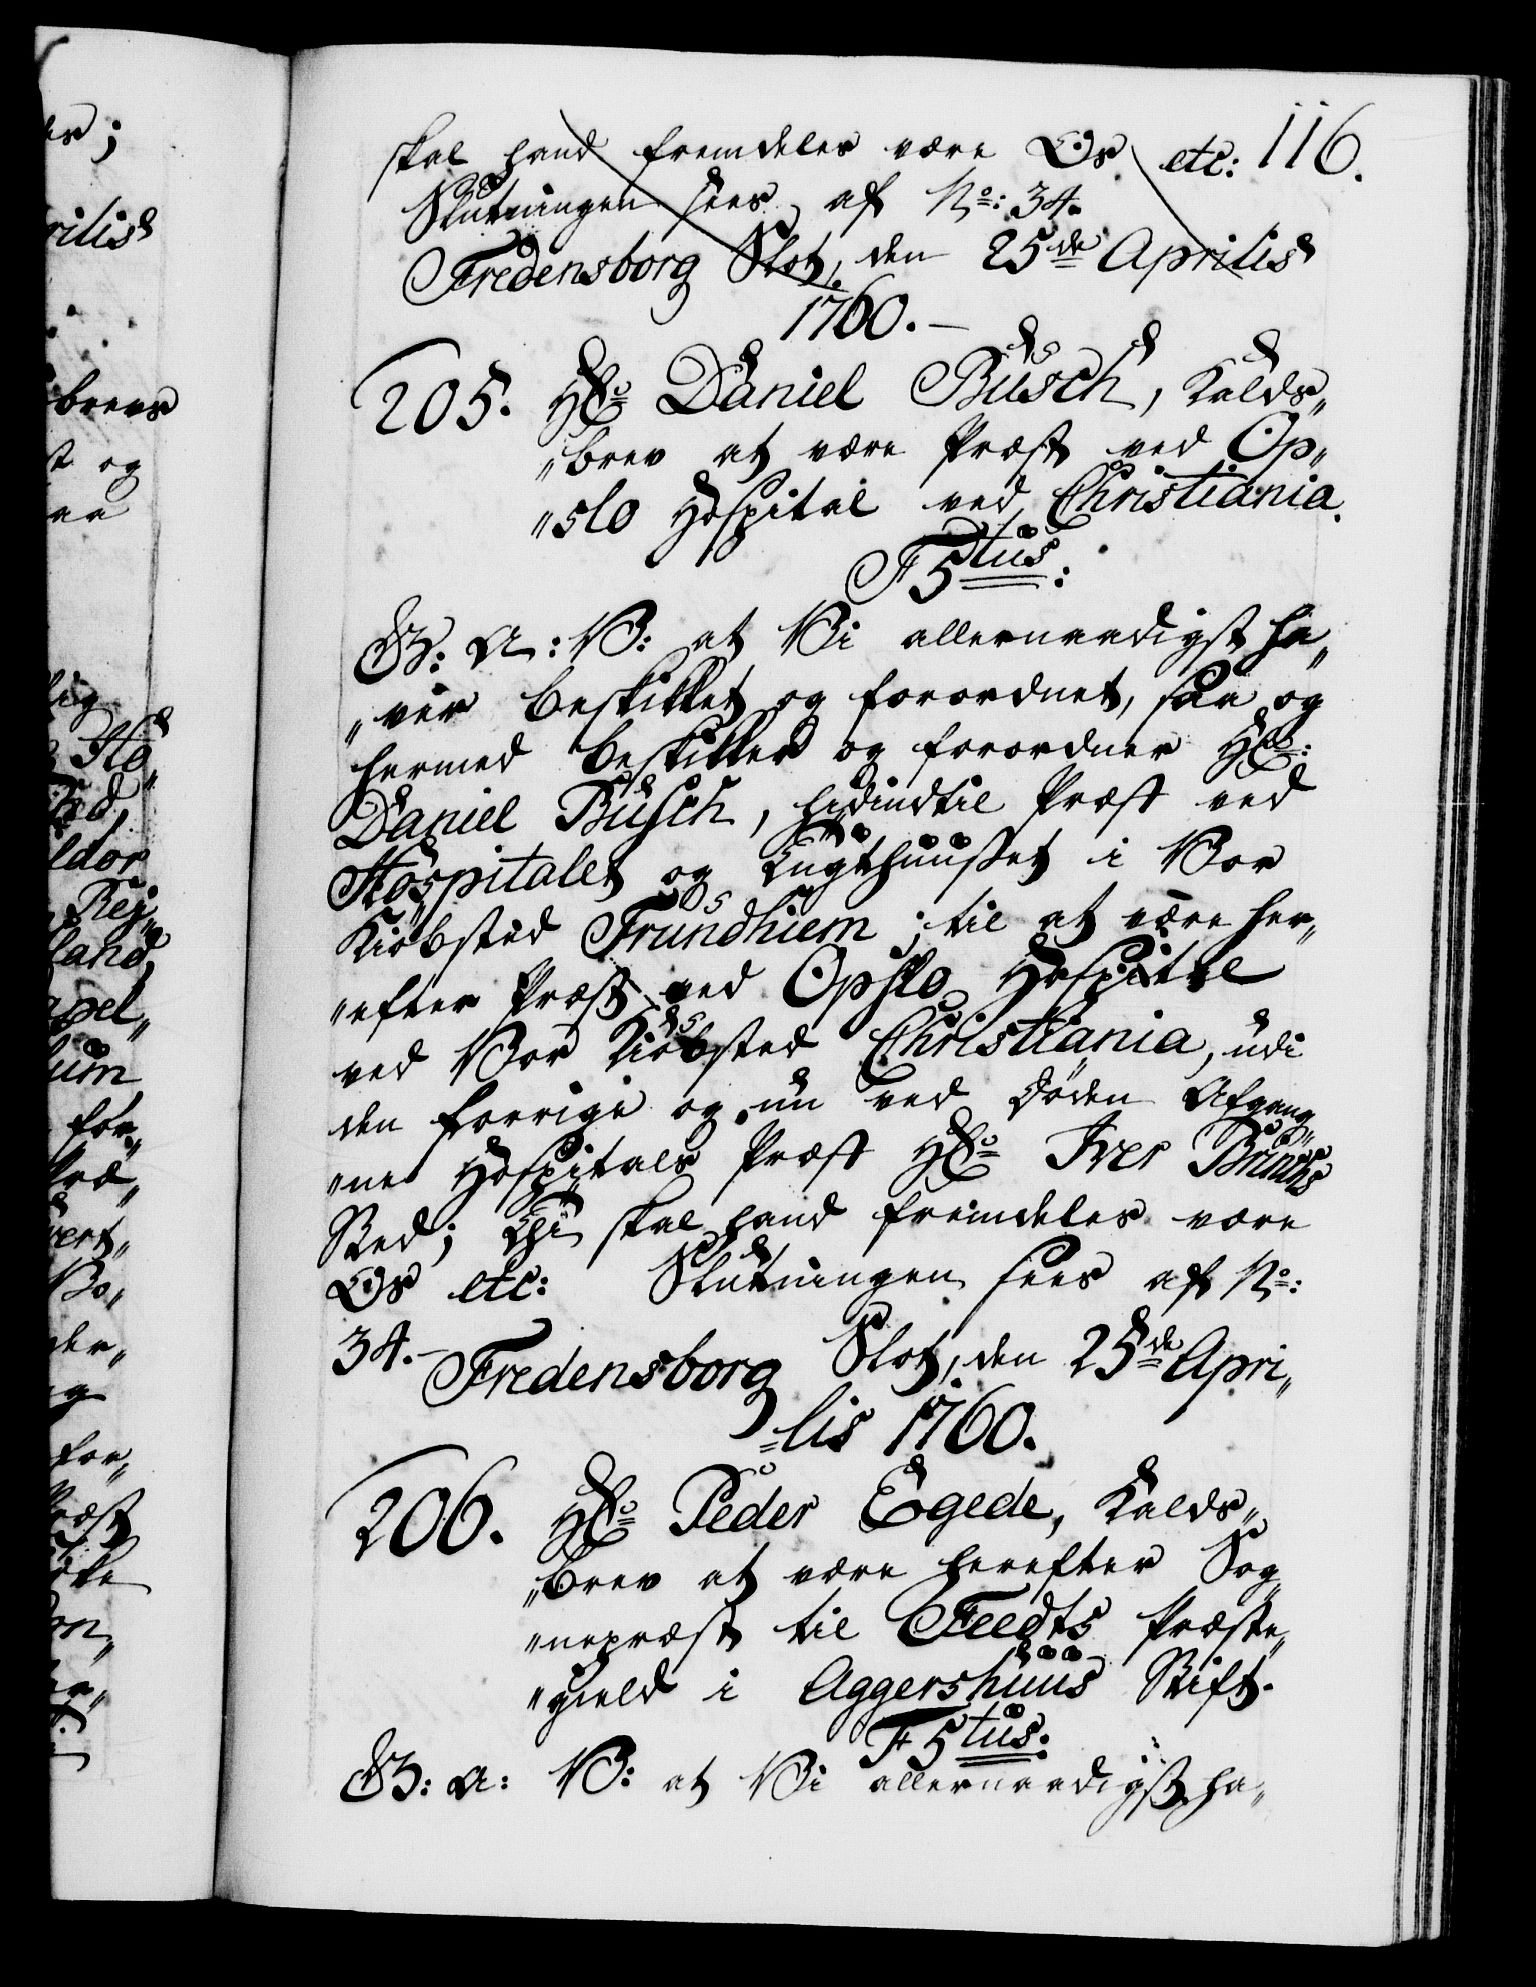 116.
skal hand fremdeles være Os etc:
Slutningen sees af No: 34.
Fredensborg Slot, den 25de Aprilis
1760.
205. Hr: Daniel Büsch, Kalds„
„brev at være Præst ved Op„
„slo Hospital ved Christiania.
F 5tus:
G: A: V: at Vi allernaadigst ha„
„ver beskikket og forordnet, saa og
hermed beskikker og forordner Hr:
Daniel Büsch, hidindtil Præst ved
Hospitalet og Tugthuuset i Vor
Kiöbsted Trundhiem; til at være her„
„efter Præst ved Opslo Hospital
ved Vor Kiöbsted Christiania, udi
den forrige og nu ved Døden Afgang„
„ne Hospitals Præst Hr: Iver
Sted; Thi skal hand fremdeles være
Os etc: Slutningen sees af No:
34. Fredensborg Slot, den 25de Apri„
„lis 1760.
206. Hr: Peder Egede, Kalds„
„brev at være herefter Sog„
„nepræst til Feedts Præste„
„gield i Aggershuus Stift.
F 5tus:
G: A: V: at Vi allernaadigst ha„